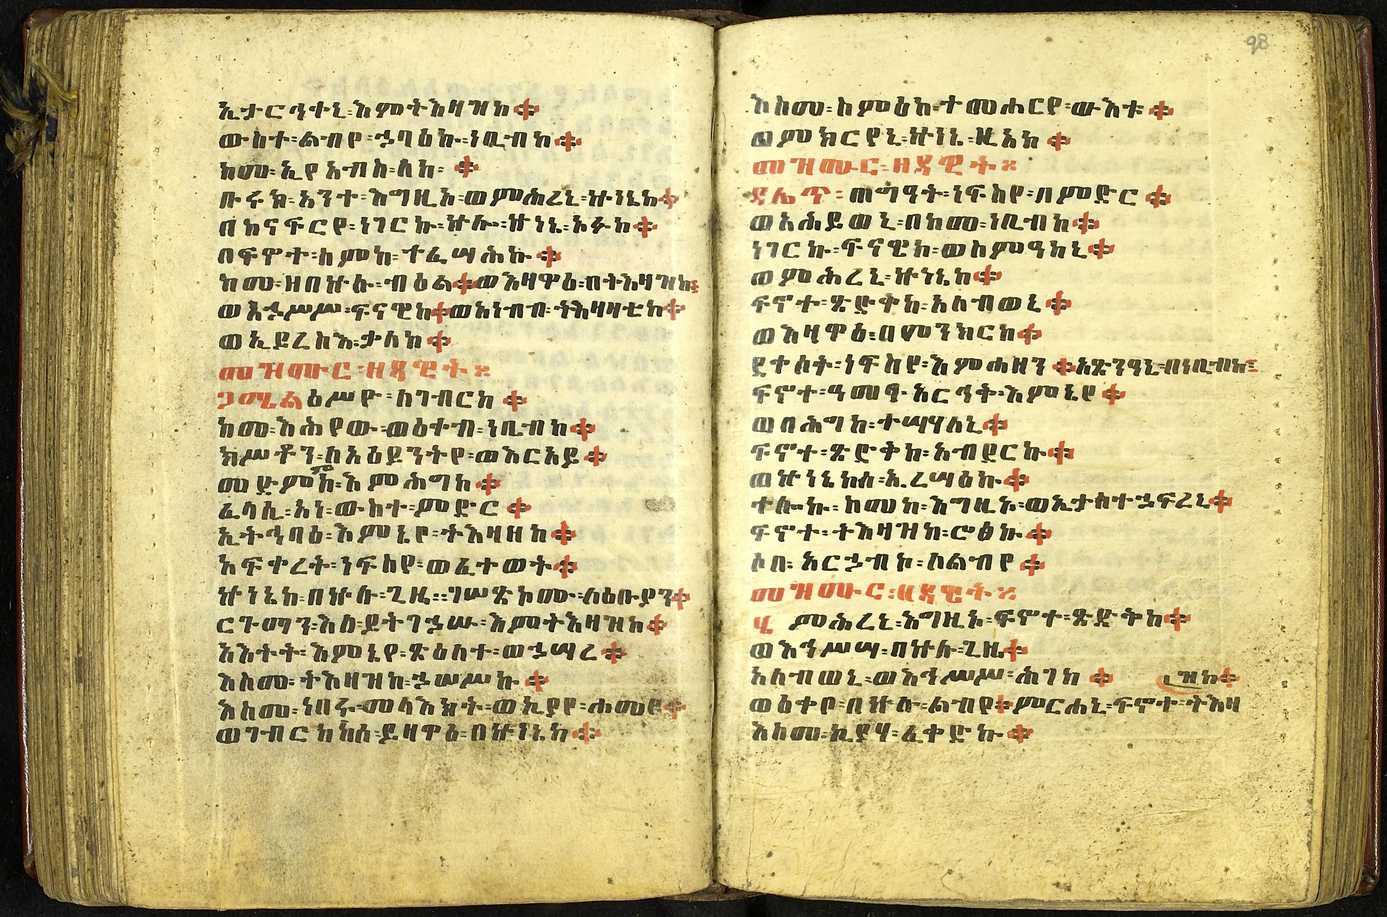 ኢታርኅተኒ፡እምትእዛዝከ።
ውስተ፡ልብየ፡ኀባዕኩ፡ነቢብከ።
ከመ፡ኢየአብስ፡ለከ፡።
ቡሩክ፡አንተ፡እግዚኦ፡ወምሕረኒ፡ኵነኔከ።
በከናፍርየ፡ነገርኩ፡ኵሎ፡ኵነኔ፡አፉከ።
በፍኖተ፡ስምከ፡ተፈሣሕኩ።
ከመ፡ዘበኵሉ፡ብዕል።ወእዛዋዕ፡በትእዛዝከ፡
ወእኀሥሥ፡ፍናዊከ።ወአነብብ፡ትእዛዛቲከ።
ወኢይረስእ፡ቃለከ።
መዝሙር፡ዘዳዊት፤
ጋሜልዕሥዮ፡ለገብርከ።
ከመ፡እሕየው፡ወዕተብ፡ነቢብከ።
ክሥቶን፡ለአዕይንትየ፡ወእርአይ።
መድምመከ፡እምሕግከ።
ፈላሲ፡አነ፡ውስተ፡ምድር።
ኢትኅባዕ፡እምኔየ፡ትእዛዘከ።
አፍተረት፡ነፍስየ፡ወፈተወት።
ኵነኔከ፡በኵሉ፡ጊዜ፡፡ገሠጽኮሙ፡ለዕቡያን።
ርጉማን፡እለ፡ይትገኀሡ፡እምትእዛዝከ።
አእትት፡እምኔየ፡ጽዕለተ፡ወኀሣረ።
እስመ፡ትእዛዝከ፡ኀሠሥኩ።
እስመ፡ነበሩ፡መላእክት፡ወኪያየ፡ሐመዩ።
ወገብርከሰ፡ይዛዋዕ፡በኵነኔከ።
እስመ፡ስምዕከ፡ተመሐርየ፡ውእቱ።
ወምክርየኒ፡ኵነኔ፡ዚአከ።
መዝሙር፡ዘዳዊት፤
ዳሌጥ፡ጠግዓት፡ነፍስየ፡በምድር።
ወአሕይወኒ፡በከመ፡ነቢብከ።
ነገርኩ፡ፍናዊከ፡ወሰምዓከኒ።
ወምሕረኒ፡ኵነኔከ።
ፍኖተ፡ጽድቅከ፡አለብወኒ።
ወእዛዋዕ፡በመንክርከ።
ደቀሰት፡ነፍስየ፡እምሐዘን።አጽንዓኒ፡በነቢብከ፡
ፍኖተ፡ዓመፃ፡አርኅቅ፡እምኔየ።
ወበሕግከ፡ተሣሃለኒ።
ፍኖተ፡ጽድቅከ፡አብደርኩ።
ወኵነኔከሰ፡ኢረሣዕኩ።
ተሎኩ፡ስመከ፡እግዚኦ፡ወኢታስተኀፍረኒ።
ፍኖተ፡ትእዛዝከ፡ሮፅኩ።
ሶበ፡አርኀብኮ፡ለልብየ።
መዝሙር፡ዘዳዊት፤
ሄ ምሕረኒ፡እግዚኦ፡ፍኖተ፡ጽድቅከ።
ወእኅሥሣ፡በኵሉ፡ጊዜ።
አለብወኒ፡ወእኅሥሥ፡ሕገከ።
ወዕቀቦ፡በኵሉ፡ልብየ።ምርሐኒ፡ፍኖተ፡ትእዛዝከ።
እስመ፡ኪያሃ፡ፈቀድኩ።
98